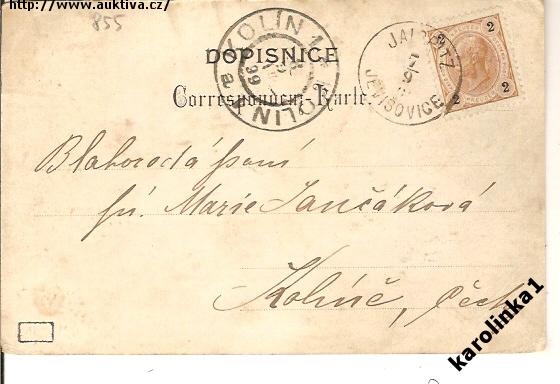 http://www.auktiva.cz/
855
KOLÍN 1 * KOLÍN
99
JAISPITZ
JEVIŠOVICE
2
2 2
DOPISNICE
Correspondenz-Karte.
Blahorodá paní
pí. Marie Jančáková
Kolíně, Čech
karolinka1